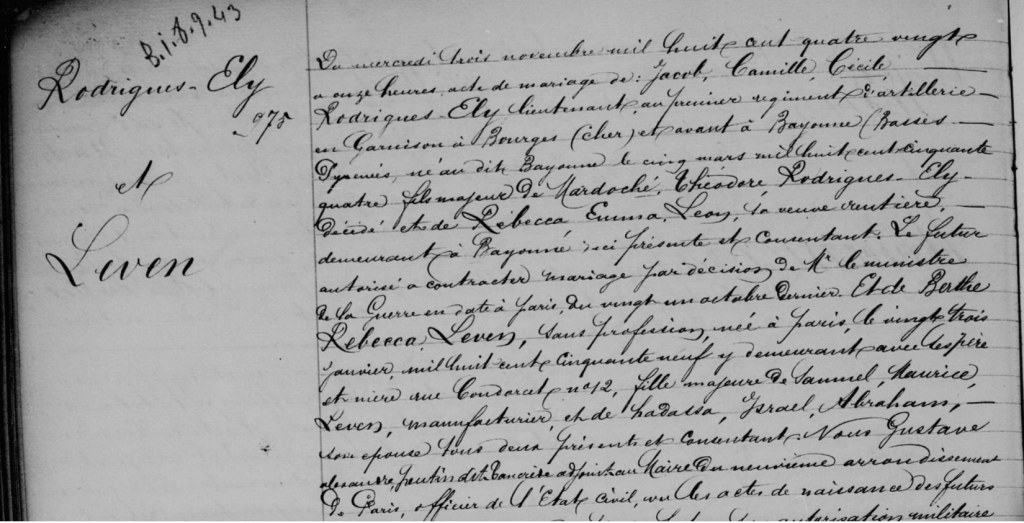 B.i.8.9.43
Rodrigues-Ely
975
et
Leven
Du mercredi trois novembre mil huit cent quatre vingt
a onze heures, acte de mariage de: Jacob, Camille, Cécile
Rodrigues-Ely lieutenant, au premier régiment d'artillerie
en Garnison à Bourges (Cher) et avant à Bayonne (Basses-
Pyrénées, né au dit Bayonne le cinq mars mil huit cent cinquante
quatre fils majeur de Mardoché, Théodore Rodrigues-Ely
décédé et de Rébecca Emma, Leon, sa veuve rentière,
demeurant à Bayonne, ici présente et consentant. Le futur
autorisé a contracter mariage par décision de Mr le ministre
de la Guerre en date à Paris, du vingt un octobre dernier. Et de Berthe
Rébecca Leven, sans profession, née à Paris, le vingt trois
janvier, mil huit cent cinquante neuf y demeurant avec ses père
et mère rue Condorcet no 12, fille majeure de Samuel, Maurice,
Leven, manufacturier, et de hadassa, Israel, Abraham,
son épouse tous deux présents et consentant. Nous Gustave
adjoint au Maire du neuvième arrondissement
de Paris, officier de l'Etat civil, vu les actes de naissance des futurs
autorisation militaire